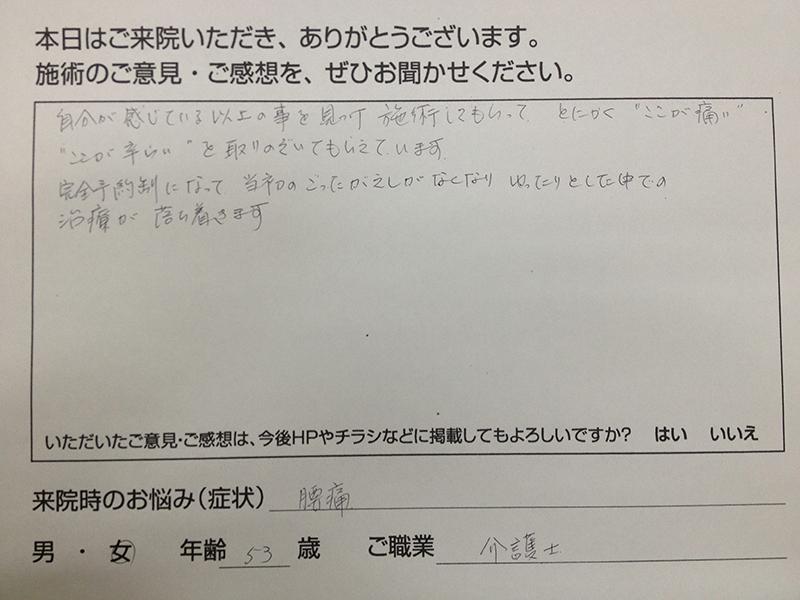 本日はご来院いただき、ありがとうございます。
施術のご意見・ご感想を、ぜひお聞かせください。
自分が感じている以上の事を見つけ 施術してもらって、とにかく "ここが痛い"
"ここが辛い" を取りのぞいてもらえています。
完全予約制になって、当初のごったがえしがなくなり ゆったりとした中での
治療が 落ち着きます
いただいたご意見・ご感想は、今後HPやチラシなどに掲載してもよろしいですか? はい いいえ
来院時のお悩み(症状) 腰痛
男 ・ 女 年齢 53 歳 ご職業 介護士